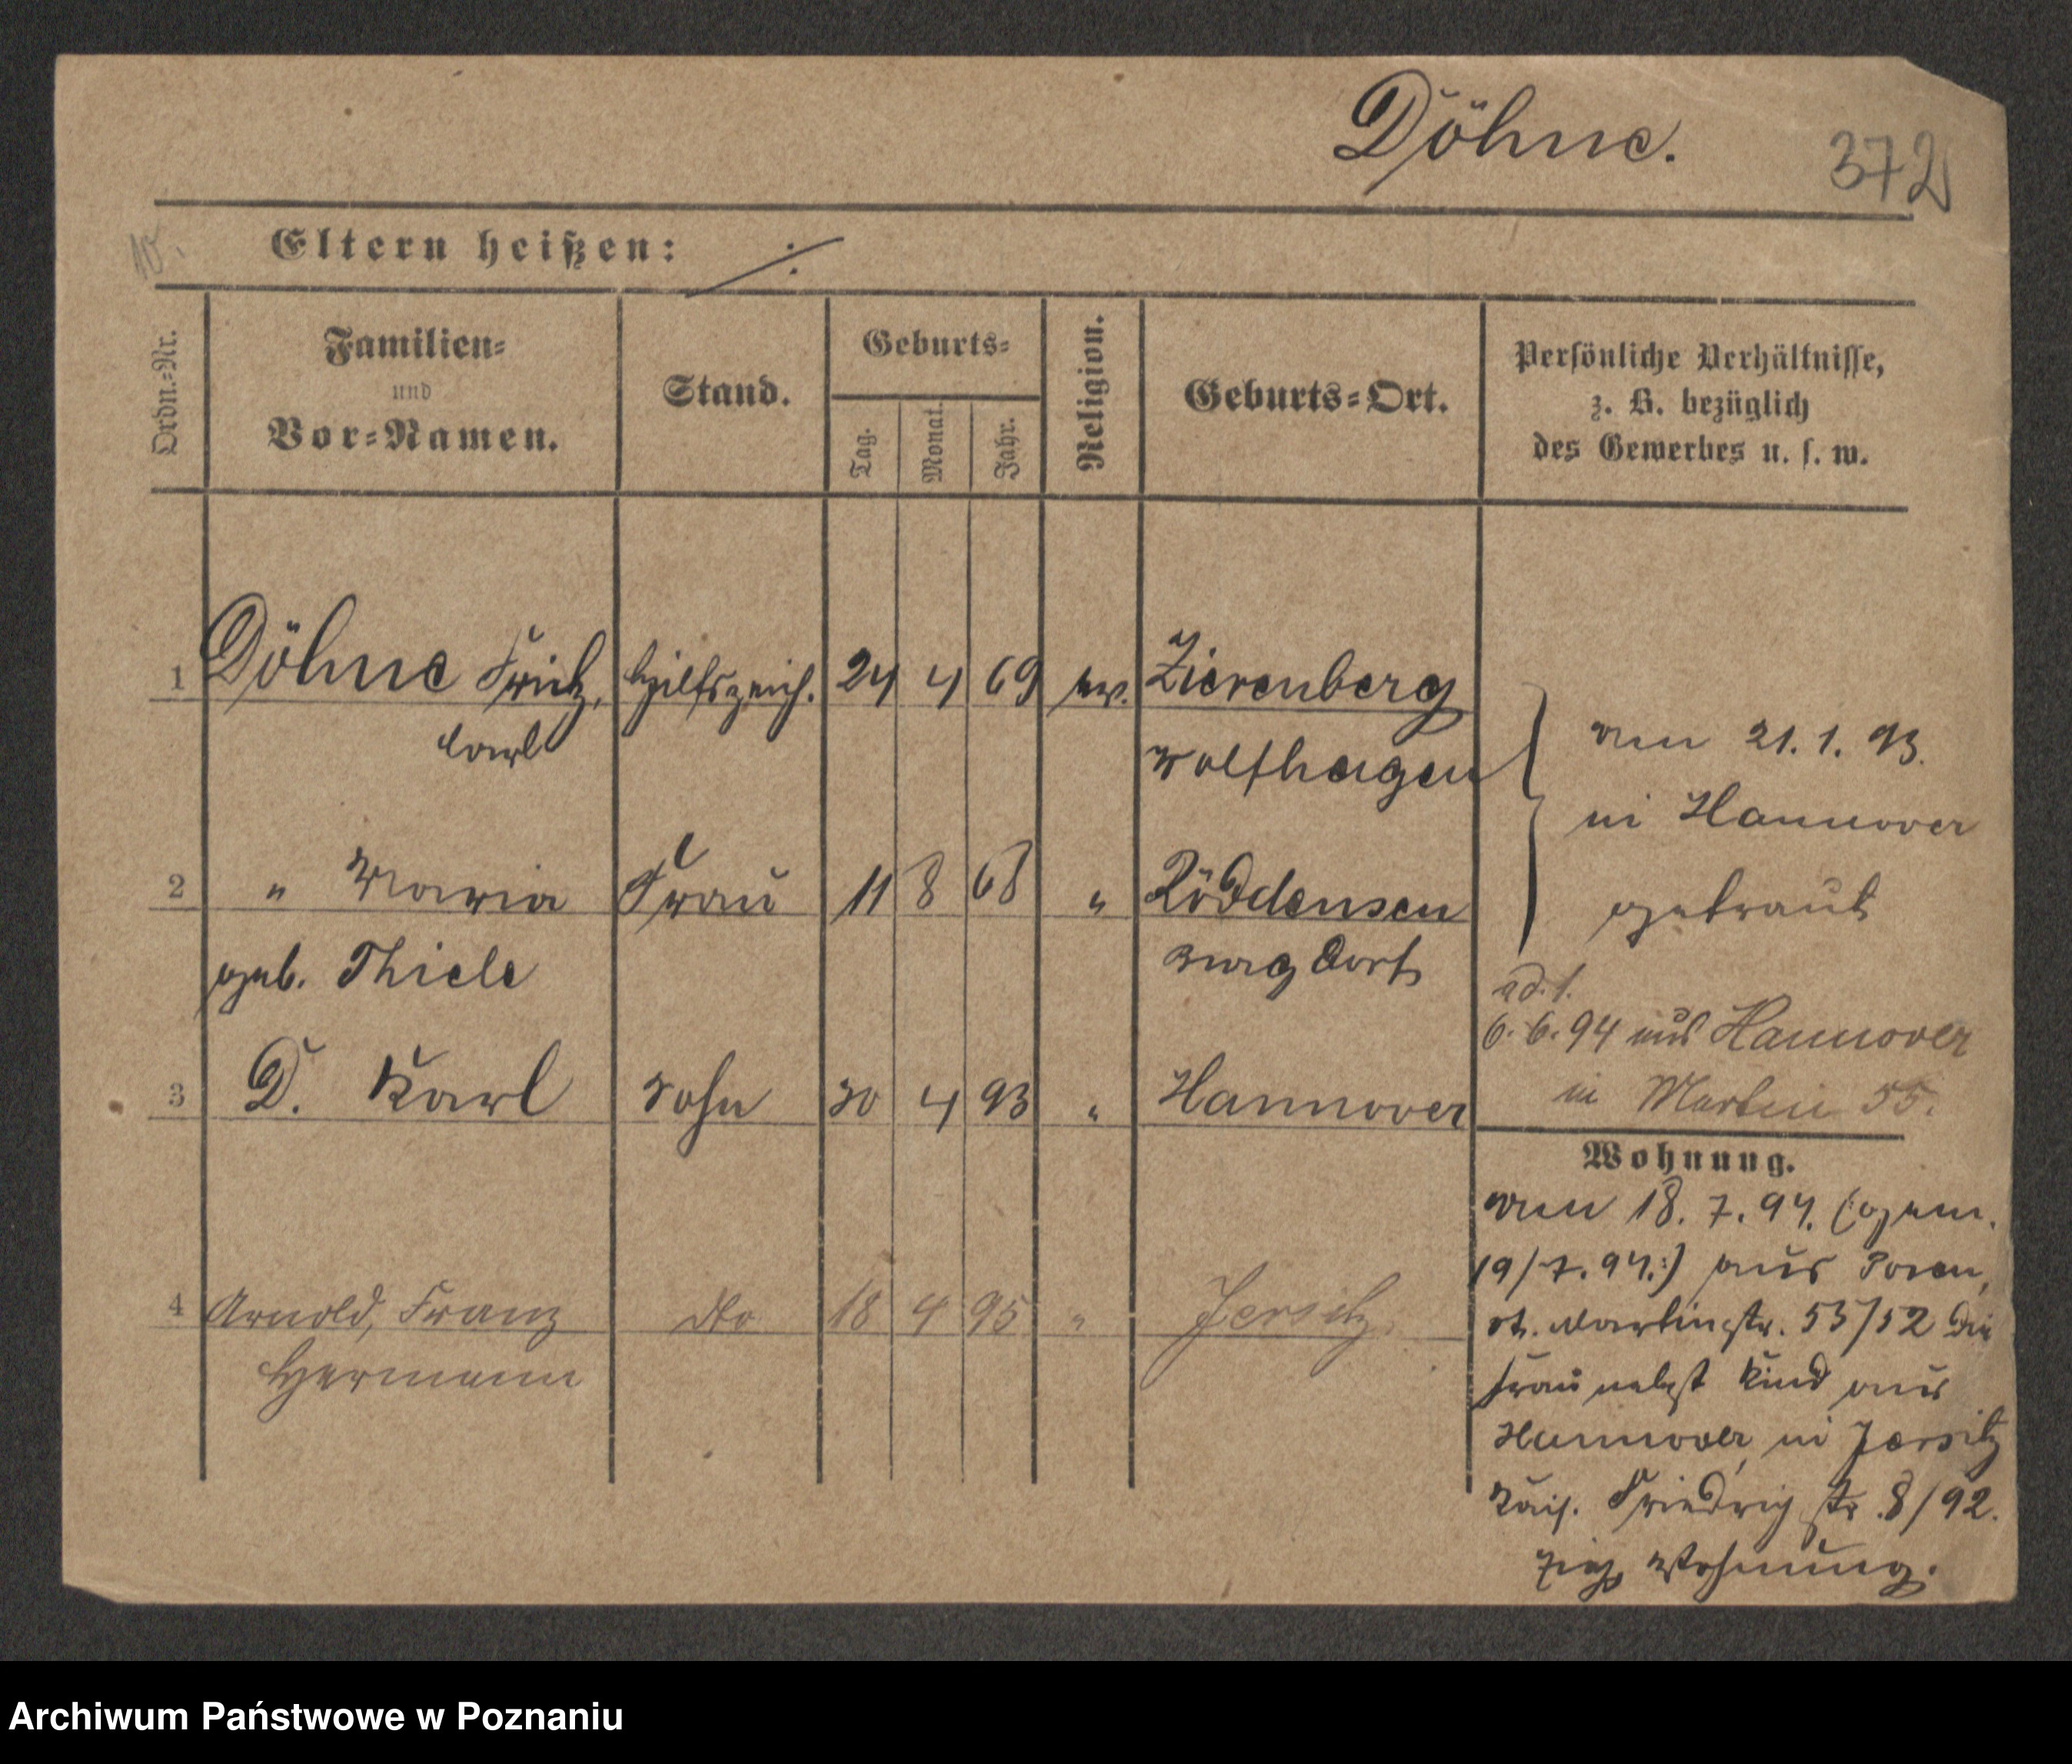 Döhne.
372
10.
Eltern heißen: ./.
Ordn.-Nr.
Familien-
und
Vor-Namen.
Stand.
Geburts-
Tag.
Monat.
Jahr.
Religion.
Geburts-Ort.
Persönliche Verhältnisse,
z. B. bezüglich
des Gewerbes u. s. w.
1 Döhne Fritz, Hilfszeich. 24 4 69 ev. Zierenberg
Carl
Wolfhagen
am 21. 1. 93.
in Hannover
getraut
2 " Maria Frau 11 8 68 " Röddensen
geb. Thiele Burgdorf
ad. 1.
6. 6. 94 aus Hannover
in Martin 55.
3 D. Karl Sohn 30 4 93 " Hannover
4 Arnold, Franz dto 18 4 95 " Jersitz.
Hermann
Wohnung.
am 18. 7. 94. (:gem.
19/7. 94.:) aus Posen,
St. Martinstr. 55/52 die
Frau nebst Kind aus
Hannover, in Jersitz
Kais. Friedrich str. 8/92.
Wohnung.
Archiwum Państwowe w Poznaniu